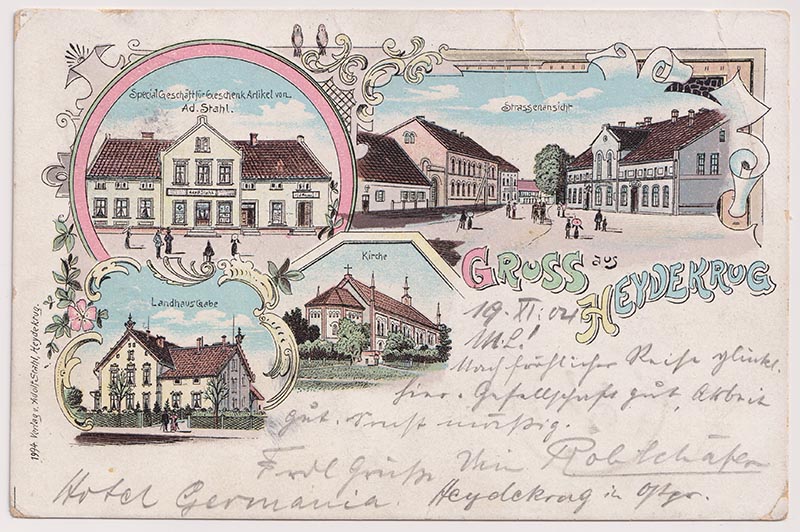 Special Geschäft für Geschenk Artikel von
Ad. Stahl.
Strassenansicht
Kirche
Landhaus Gabe
GRUSS aus
HEYDEKRUG
19. XI. 04
M. L!
Nach fröhlicher Reise glückl.
hier. Gesellschaft gut, Arbeit
gut. Sonst mäßig.
Frdl Grüße Dein Rob Schäfer
Hotel Germania. Heydekrug in Ostpr.
1994 Verlag v. Adolf Stahl, Heydekrug.